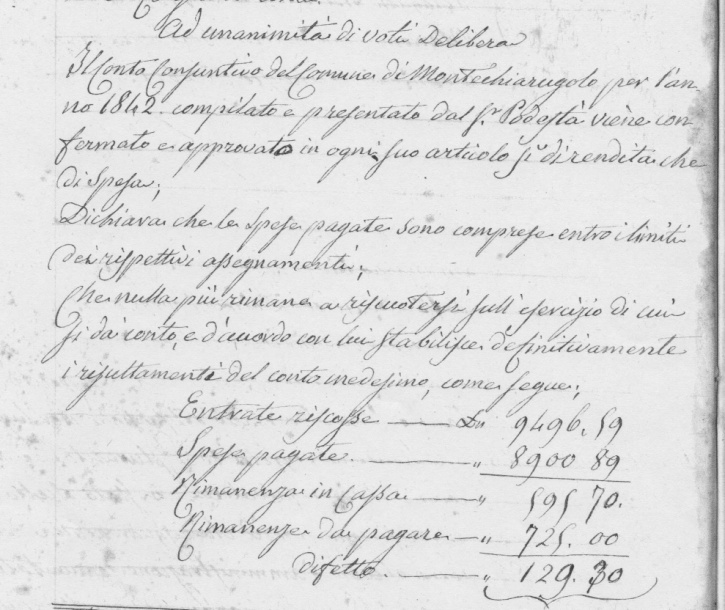 Ad unanimità di voti Delibera
Il Conto Consuntivo del Comune di Montechiarugolo per l'an-
no 1842. compilato e presentato dal Sr. Podestà viene con
fermato e approvato in ogni suo articolo sì di rendita che
di Spesa;
Dichiara che le Spese pagate sono comprese entro i limiti
dei rispettivi assegnamenti;
Che nulla più rimane a riscuotersi sull'esercizio di cui
si dà conto, e d'accordo con lui stabilisce definitivamente
i resultamenti del conto medesimo, come segue;
Entrate riscosse —— Ln 9496.59
Spese pagate. —— „ 8900 89
Rimanenza in Cassa —— „ 595 70.
Rimanenze da pagare — „ 725. 00
difetto. —— „ 129. 30